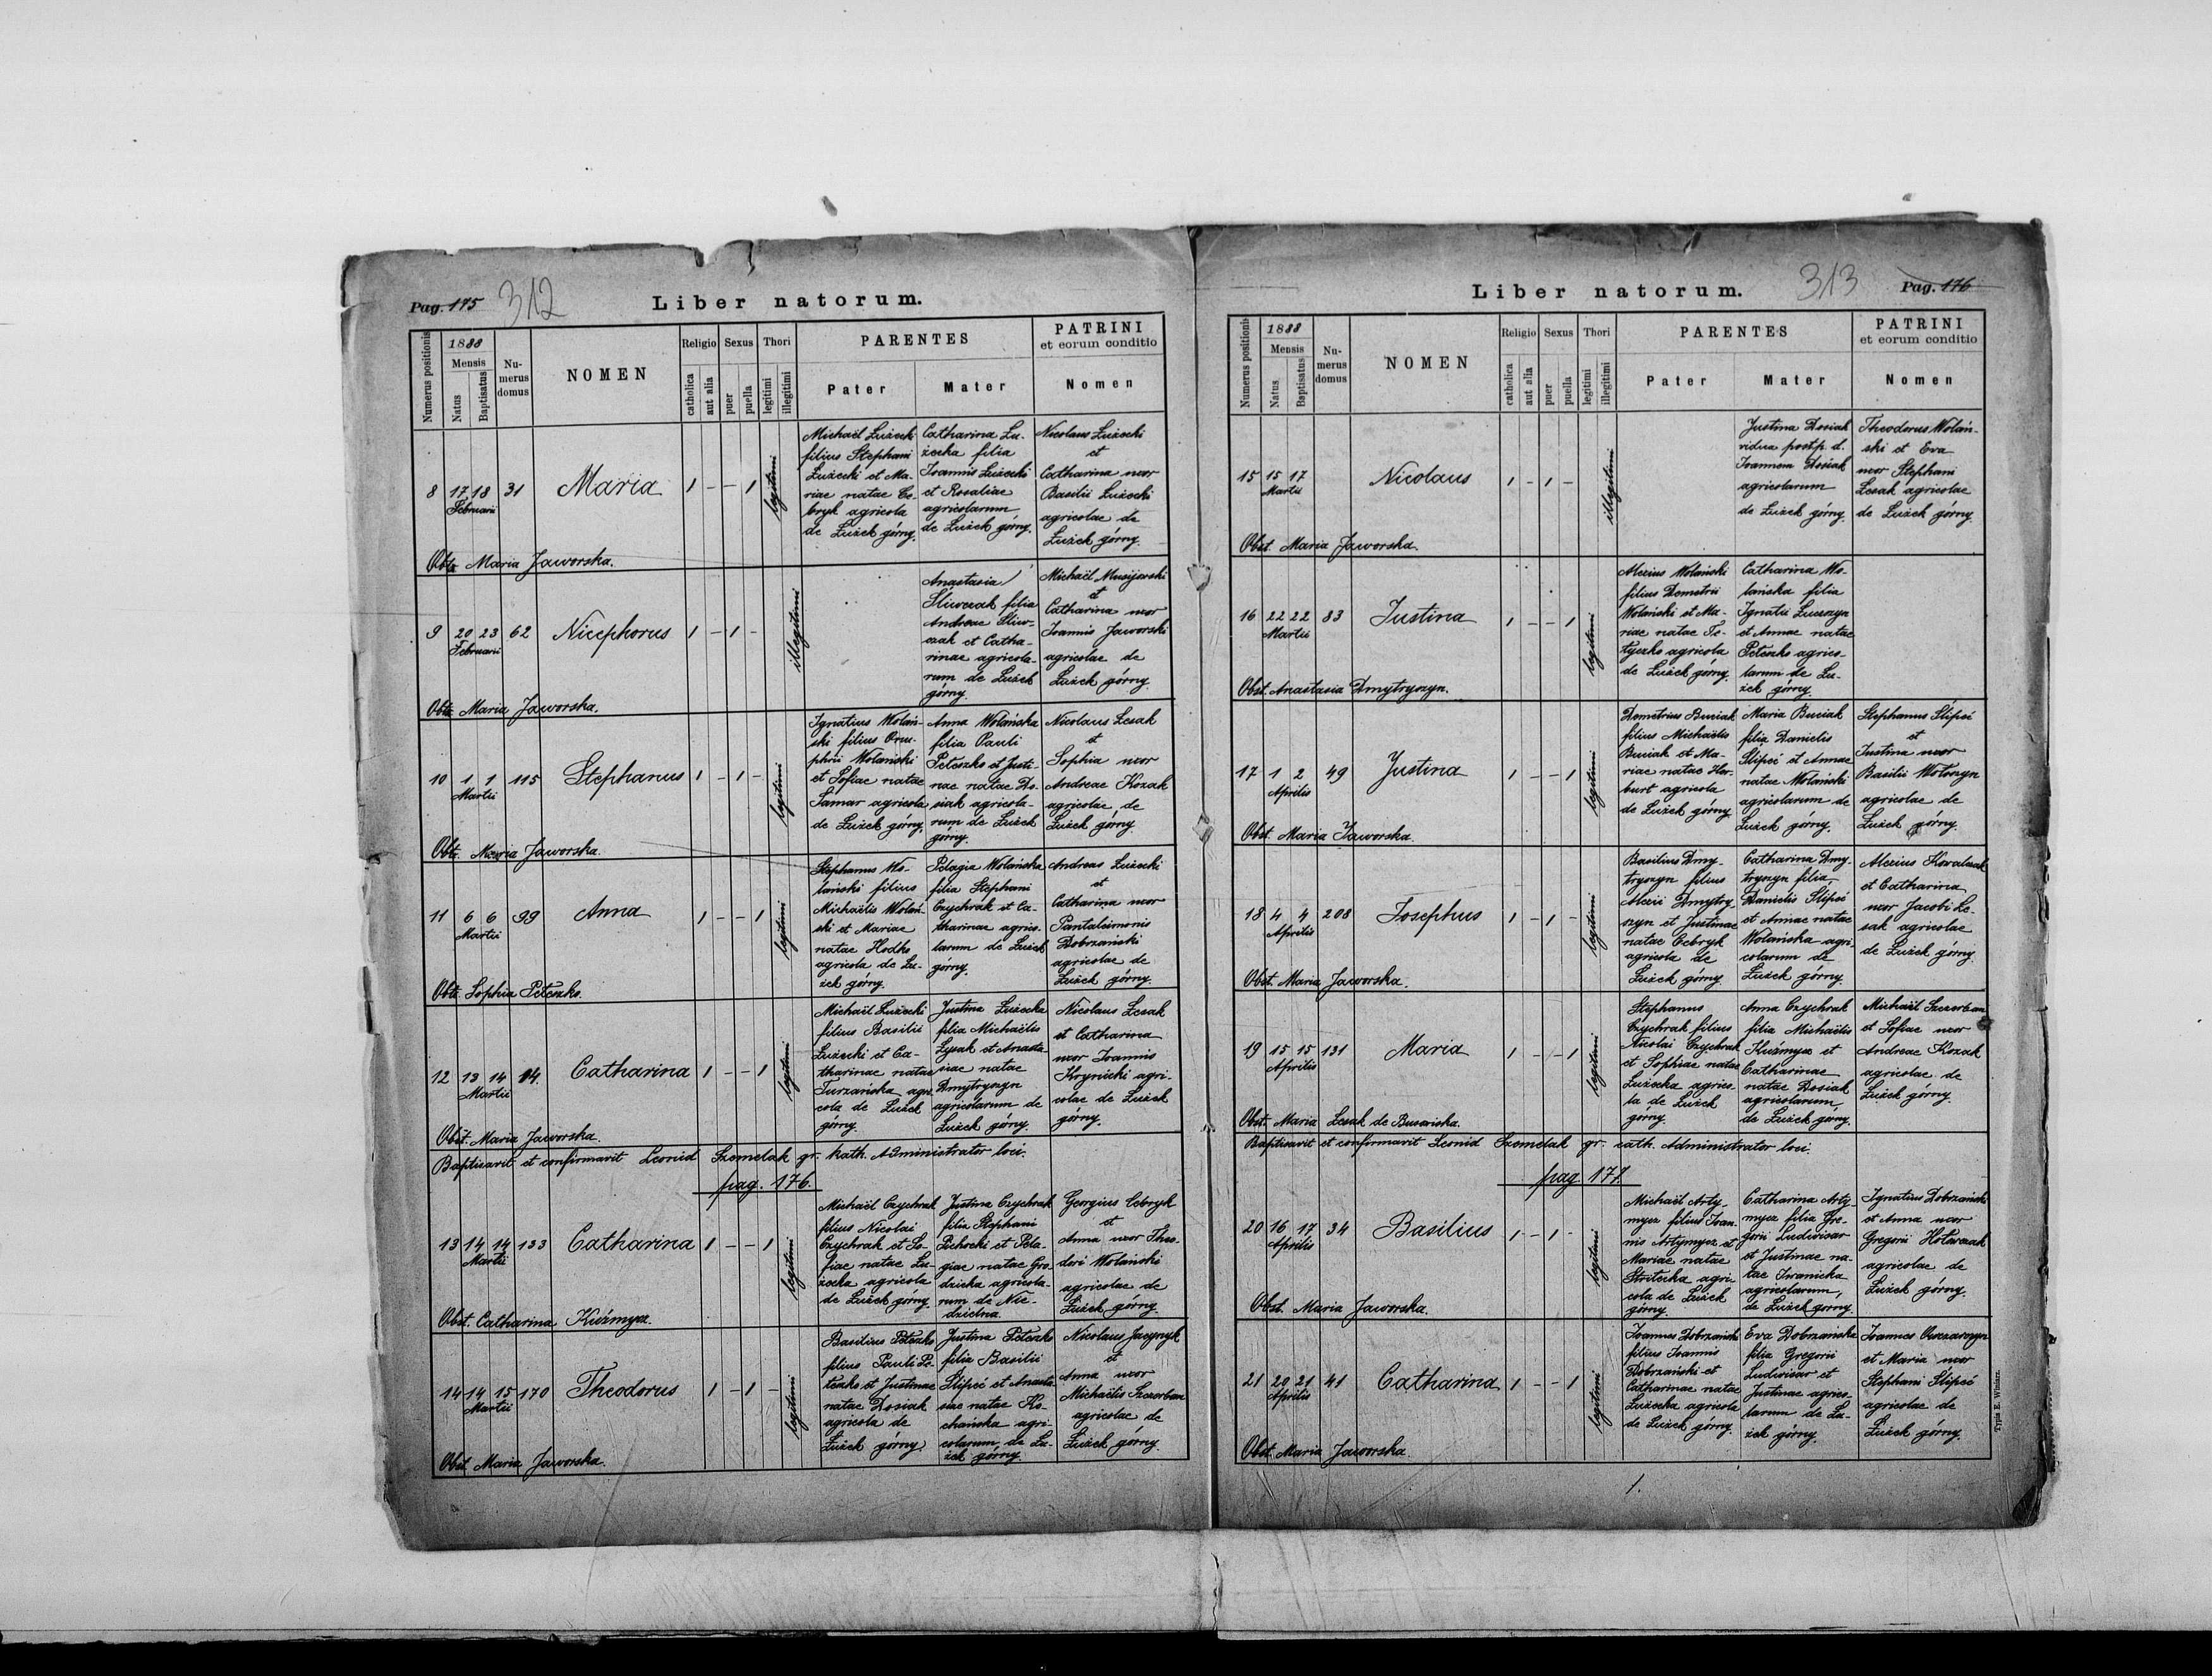 Pag. 175
312
Liber natorum.
Numerus positionis
1888
Mensis
Natus
Baptisatus
Nu-
merus
domus
NOMEN
Religio
catholica
aut alia
Sexus
puer
puella
Thori
legitimi
illegitimi
PARENTES
Pater
Mater
PATRINI
et eorum conditio
Nomen
8 17 18 31 Maria 1 - - 1 legitimi
Februarii
Michaël Łużecki
filius Stephani
Łużecki et Ma-
riae natae Ce-
bryk agricola
de Łużek górny.
Catharina Łu-
żecka filia
Ioannis Łużecki
et Rosaliae
agricolarum
de Łużek górny.
Nicolaus Łużecki
et
Catharina uxor
Basilii Łużecki
agricolae de
Łużek górny.
Obst. Maria Jaworska.
9 20 23 62 Nicephorus 1 - 1 - illegitimi
Februarii
Anastasia
Śliwczak filia
Andreae Śliw-
czak et Catha-
rinae agricola-
rum de Łużek
górny.
Michaël Musijowski
et
Catharina uxor
Ioannis Jaworski
agricolae de
Łużek górny.
Obst. Maria Jaworska.
10 1 1 115 Stephanus 1 - 1 - legitimi
Martii
Ignatius Wolań-
ski filius Onu-
phrii Wolański
et Sofiae natae
Samar agricola
de Łużek górny.
Anna Wolańska
filia Pauli
Peteszko et Justi-
nae natae Do-
siak agricola-
rum de Łużek
górny.
Nicolaus Łesak
et
Sophia uxor
Andreae Kozak
agricolae de
Łużek górny.
Obst. Maria Jaworska.
11 6 6 99 Anna 1 - - 1 legitimi
Martii
Stephanus Wo-
lański filius
Michaëlis Wolań-
ski et Mariae
natae Hodko
agricola de Łu-
żek górny.
Pelagia Wolańska
filia Stephani
Czychrak et Ca-
tharinae agrico-
larum de Łużek
górny.
Andreas Łużecki
et
Catharina uxor
Pantaleimonis
Dobrzański
agricolae de
Łużek górny.
Obst. Sophia Peteszko.
12 13 14 14. Catharina 1 - - 1 legitimi
Martii
Michaël Łużecki
filius Basilii
Łużecki et Ca-
tharinae natae
Turzańska agri-
cola de Łużek
górny.
Justina Łużecka
filia Michaëlis
Łysak et Anasta-
siae natae
Dmytryszyn
agricolarum de
Łużek górny.
Nicolaus Łesak
et Catharina
uxor Ioannis
Krynicki agri-
colae de Łużek
górny.
Obst. Maria Jaworska.
Baptisavit et confirmavit Leonid Szemelak gr. kath. Administrator loci.
pag. 176.
13 14 14 133 Catharina 1 - - 1 legitimi
Martii
Michaël Czychrak
filius Nicolai
Czychrak et So-
fiae natae Łu-
żecka agricola
de Łużek górny.
Justina Czychrak
filia Stephani
Pichocki et Pela-
giae natae Gro-
dzicka agricola-
rum de Nie-
dzielna.
Georgius Cebryk
et
Anna uxor Theo-
dori Wolański
agricolae de
Łużek górny.
Obst. Catharina Kuźmycz.
14 14 15 170 Theodorus 1 - 1 - legitimi
Martii
Basilius Peteszko
filius Pauli Pe-
teszko et Justinae
natae Dosiak
agricola de
Łużek górny.
Justina Peteszko
filia Basilii
Slipeć et Anasta-
siae natae Ko-
chańska agri-
colarum de Łu-
żek górny.
Nicolaus Jacynyk
et
Anna uxor
Michaëlis Szczerban
agricolae de
Łużek górny.
Obst. Maria Jaworska.
Liber natorum.
313
Pag. 176
Numerus positionis
1888
Mensis
Natus
Baptisatus
Nu-
merus
domus
NOMEN
Religio
catholica
aut alia
Sexus
puer
puella
Thori
legitimi
illegitimi
PARENTES
Pater
Mater
PATRINI
et eorum conditio
Nomen
15 15 17 Nicolaus 1 - 1 - illegitimi
Martii
Justina Dosiak
vidua post p. d.
Ioannem Dosiak
agricolarum
de Łużek górny.
Theodorus Wolań-
ski et Eva
uxor Stephani
Łesak agricolae
de Łużek górny.
Obst. Maria Jaworska.
16 22 22 83 Justina 1 - - 1 legitimi
Martii
Alexius Wolański
filius Demetrii
Wolański et Ma-
riae natae Te-
tyczko agricola
de Łużek górny.
Catharina Wo-
lańska filia
Ignatii Łuczszyn
et Annae natae
Peteszko agrico-
larum de Łu-
żek górny.
Obst. Anastasia Dmytryszyn.
17 1 2 49 Justina 1 - - 1 legitimi
Aprilis
Demetrius Buciak
filius Michaëlis
Buciak et Ma-
riae natae Her-
burt agricola
de Łużek górny.
Maria Buciak
filia Danielis
Slipeć et Annae
natae Wolański
agricolarum de
Łużek górny.
Stephanus Slipeć
et
Justina uxor
Basilii Wołoszyn
agricolae de
Łużek górny.
Obst. Maria Jaworska.
18 4 4 208 Josephus 1 - 1 - legitimi
Aprilis
Basilius Dmy-
tryszyn filius
Alexii Dmytry-
szyn et Justinae
natae Cebryk
agricola de
Łużek górny.
Catharina Dmy-
tryszyn filia
Danielis Slipeć
et Annae natae
Wolańska agri-
colarum de
Łużek górny.
Alexius Kowalczak
et Catharina
uxor Jacobi Łe-
sak agricolae
de Łużek górny.
Obst. Maria Jaworska.
19 15 15 131 Maria 1 - - 1 legitimi
Aprilis
Stephanus
Czychrak filius
Nicolai Czychrak
et Sophiae natae
Łużecka agrico-
la de Łużek
górny.
Anna Czychrak
filia Michaëlis
Kuźmycz et
Catharinae
natae Dosiak
agricolarum
de Łużek górny.
Michaël Szczerban
et Sofiae uxor
Andreae Kozak
agricolae de
Łużek górny.
Obst. Maria Łesak de Busowiska.
Baptisavit et confirmavit Leonid Szemelak gr. cath. Administrator loci.
pag 177.
20 16 17 34 Basilius 1 - 1 - legitimi
Aprilis
Michaël Arty-
mycz filius Ioan-
nis Artymycz et
Mariae natae
Stritecka agri-
cola de Łużek
górny.
Catharina Arty-
mycz filia Gre-
gorii Ludwisar
et Justinae na-
tae Iwanicka
agricolarum
de Łużek górny.
Ignatius Dobrzański
et Anna uxor
Gregorii Hołowczak
agricolae de
Łużek górny.
Obst. Maria Jaworska.
21 20 21 41 Catharina 1 - - 1 legitimi
Aprilis
Ioannes Dobrzański
filius Ioannis
Dobrzański et
Catharinae natae
Łużecka agricola
de Łużek górny.
Eva Dobrzańska
filia Gregorii
Ludwisar et
Justinae agrico-
larum de Łu-
żek górny.
Ioannes
et Maria uxor
Stephani Slipeć
agricolae de
Łużek górny.
Obst. Maria Jaworska.
Typis E. Winiarz.